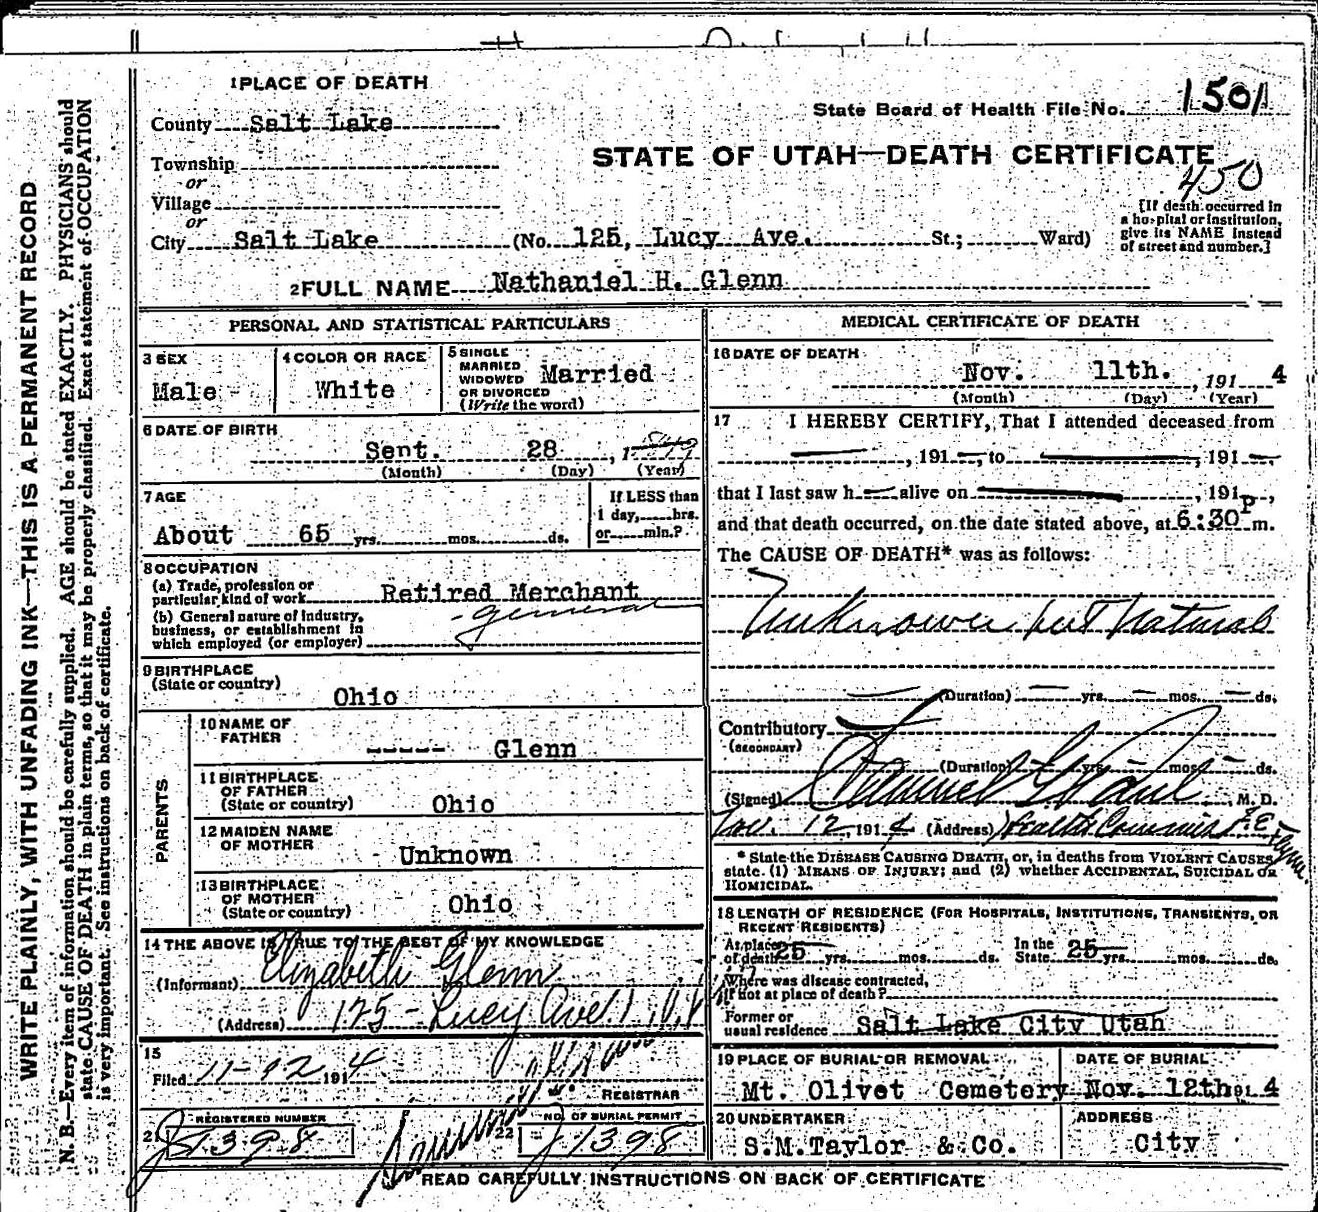 WRITE PLAINLY, WITH UNFADING INK—THIS IS A PERMANENT RECORD
N. B.—Every item of information should be carefully supplied. AGE should be stated EXACTLY. PHYSICIANS should
state CAUSE OF DEATH in plain terms, so that it may be properly classified. Exact statement of OCCUPATION
is very important. See instructions on back of certificate.
1 PLACE OF DEATH
State Board of Health File No. 1501
County Salt Lake
STATE OF UTAH—DEATH CERTIFICATE
450
Township
or
Village
or
City Salt Lake (No. 125, Lucy Ave. St.; Ward)
[If death occurred in
a hospital or institution,
give its NAME instead
of street and number.]
2 FULL NAME Nathaniel H. Glenn
PERSONAL AND STATISTICAL PARTICULARS
3 SEX
Male
4 COLOR OR RACE
White
5 SINGLE
MARRIED
WIDOWED
OR DIVORCED
(Write the word)
Married
6 DATE OF BIRTH
Sent. 28, 1849
(Month) (Day) (Year)
7 AGE
About 65 yrs. mos. ds.
If LESS than
1 day, hrs.
or min.?
8 OCCUPATION
(a) Trade, profession or
particular kind of work Retired Merchant
(b) General nature of industry,
business, or establishment in
which employed (or employer)
- general
9 BIRTHPLACE
(State or country)
Ohio
PARENTS
10 NAME OF
FATHER
----- Glenn
11 BIRTHPLACE
OF FATHER
(State or country) Ohio
12 MAIDEN NAME
OF MOTHER
Unknown
13 BIRTHPLACE
OF MOTHER
(State or country) Ohio
14 THE ABOVE IS TRUE TO THE BEST OF MY KNOWLEDGE
(Informant) Elizabeth Glenn
(Address) 125 - Lucy Ave.
15
Filed 11-12 1914
REGISTRAR
21 REGISTERED NUMBER
J1398
22 NO. OF BURIAL PERMIT
J1398
MEDICAL CERTIFICATE OF DEATH
16 DATE OF DEATH
Nov. 11th. , 191 4
(Month) (Day) (Year)
17 I HEREBY CERTIFY, That I attended deceased from
, 191 , to , 191 ,
that I last saw h alive on , 191 ,
and that death occurred, on the date stated above, at 6:30 P m.
The CAUSE OF DEATH* was as follows:
Unknown but Natural
(Duration) yrs. mos. ds.
Contributory
(SECONDARY)
(Duration) yrs. mos. ds.
(Signed) Samuel G Paul, M. D.
Nov. 12, 1914 (Address) Health Commis
* State the DISEASE CAUSING DEATH, or, in deaths from VIOLENT CAUSES
state (1) MEANS OF INJURY; and (2) whether ACCIDENTAL, SUICIDAL OR
HOMICIDAL.
18 LENGTH OF RESIDENCE (FOR HOSPITALS, INSTITUTIONS, TRANSIENTS, OR
RECENT RESIDENTS)
At place
of death 25 yrs. mos. ds.
In the
State 25 yrs. mos. ds.
Where was disease contracted,
If not at place of death?
Former or
usual residence Salt Lake City Utah
19 PLACE OF BURIAL OR REMOVAL
Mt. Olivet Cemetery
DATE OF BURIAL
Nov. 12th, 191 4
20 UNDERTAKER
S.M.Taylor & Co.
ADDRESS
City
READ CAREFULLY INSTRUCTIONS ON BACK OF CERTIFICATE